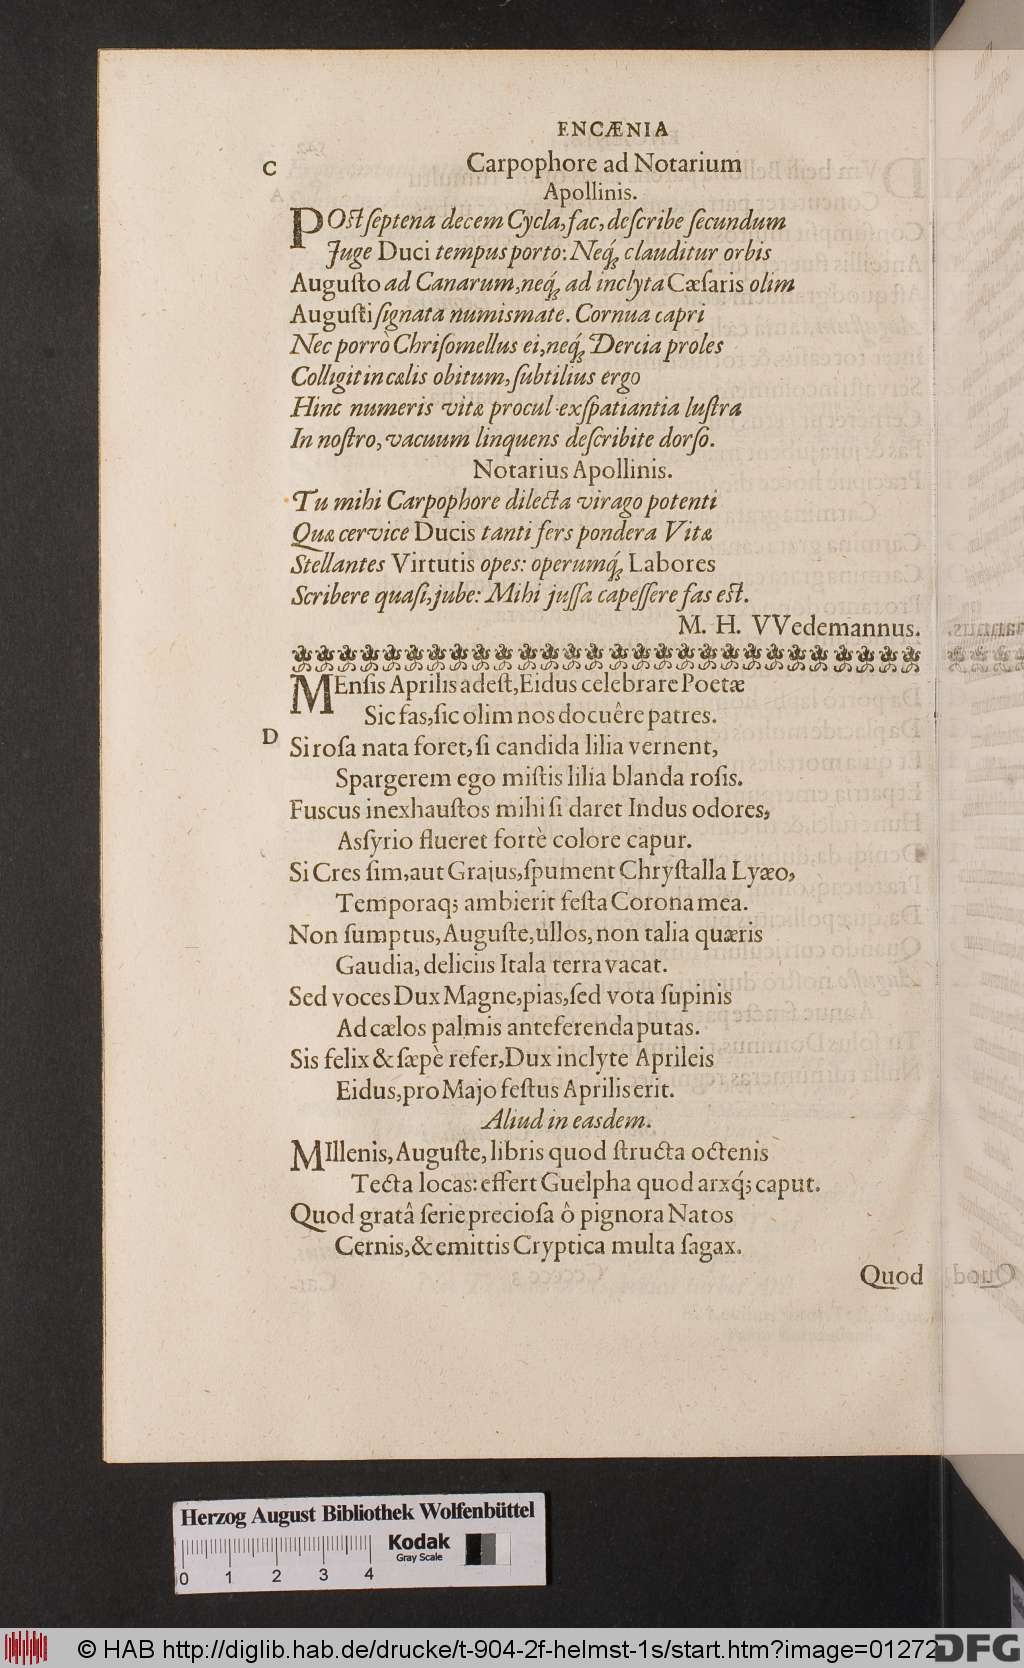 ENCÆNIA
C
Carpophore ad Notarium
Apollinis.
POst septena decem Cycla, fac, describe secundum
Juge Duci tempus porto: Neq́; clauditur orbis
Augusto ad Canarum, neq́; ad inclyta Cæsaris olim
Augusti signata numismate. Cornua capri
Nec porrò Chrisomellus ei, neq́; Dercia proles
Colligit in cælis obitum, subtilius ergo
Hinc numeris vitæ procul exspatiantia lustra
In nostro, vacuum linquens describite dorso.
Notarius Apollinis.
Tu mihi Carpophore dilecta virago potenti
Quæ cervice Ducis tanti fers pondera Vitæ
Stellantes Virtutis opes: operumq́; Labores
Scribere quasi, jube: Mihi jussa capessere fas est.
M. H. VVedemannus.
MEnsis Aprilis adest, Eidus celebrare Poetæ
Sic fas, sic olim nos docuêre patres.
D
Si rosa nata foret, si candida lilia vernent,
Spargerem ego mistis lilia blanda rosis.
Fuscus inexhaustos mihi si daret Indus odores,
Assyrio flueret fortè colore capur.
Si Cres sim, aut Grajus, spument Chrystalla Lyæo,
Temporaq; ambierit festa Corona mea.
Non sumptus, Auguste, ullos, non talia quæris
Gaudia, deliciis Itala terra vacat.
Sed voces Dux Magne, pias, sed vota supinis
Ad cælos palmis anteferenda putas.
Sis felix & sæpè refer, Dux inclyte Aprileis
Eidus, pro Majo festus Aprilis erit.
Aliud in easdem.
MIllenis, Auguste, libris quod structa octenis
Tecta locas: effert Guelpha quod arxq́; caput.
Quod gratâ serie preciosa ô pignora Natos
Cernis, & emittis Cryptica multa sagax.
Quod
Herzog August Bibliothek Wolfenbüttel
Kodak
Gray Scale
0 1 2 3 4
© HAB http://diglib.hab.de/drucke/t-904-2f-helmst-1s/start.htm?image=01272
DFG